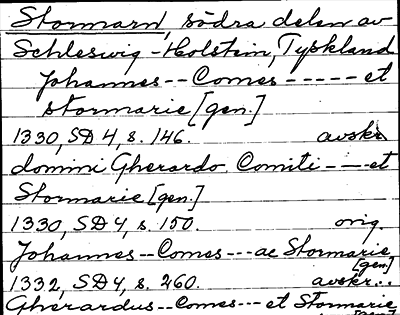 Stormarn, södra delen av
Schleswig-Holstein, Tyskland
Johannes -- Comes ----- et
stormarie [gen.]
1330, SD 4, s. 146. avskr.
domini Gherardo Comiti --- et
Stormarie [gen.]
1330, SD 4, s. 150. orig.
Johannes -- Comes --- ac Stormarie
[gen.]
1332, SD 4, s. 260. avskr..
Gherardus -- Comes --- et Stormarie
[gen.]